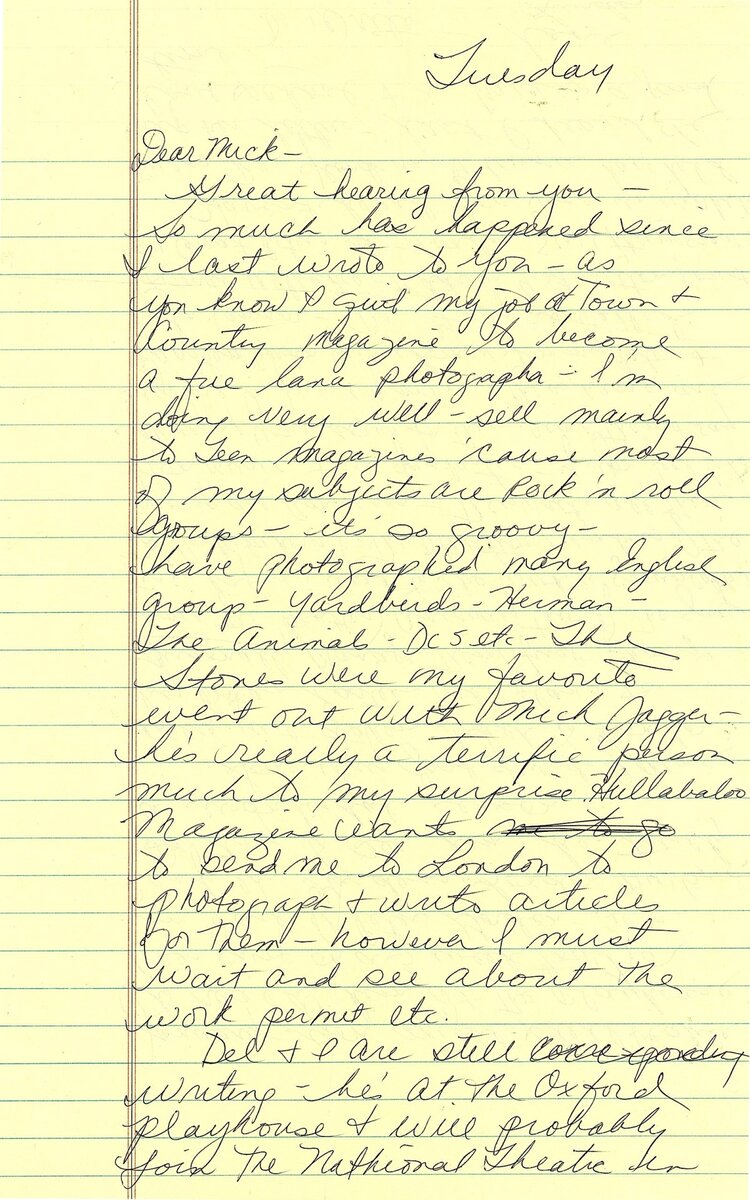 Tuesday
Dear Mick -
Great hearing from you -
So much has happened since
I last wrote to you - as
you know I quit my job at Town +
Country magazine to become
a free lance photographer - I'm
doing very well - sell mainly
to Teen magazines 'cause most
of my subjects are Rock 'n roll
groups - it's so groovy -
I have photographed many English
group - Yardbirds - Herman -
The Animals - DC5 etc - The
Stones were my favorite
went out with Mick Jagger -
he's really a terrific person
much to my surprise. Hullabaloo
Magazine wants me to go
to send me to London to
photograph + write articles
for them - however I must
wait and see about the
work permit etc.
Del + I are still corresponding
writing - he's at the Oxford
playhouse + will probably
join the National Theatre in